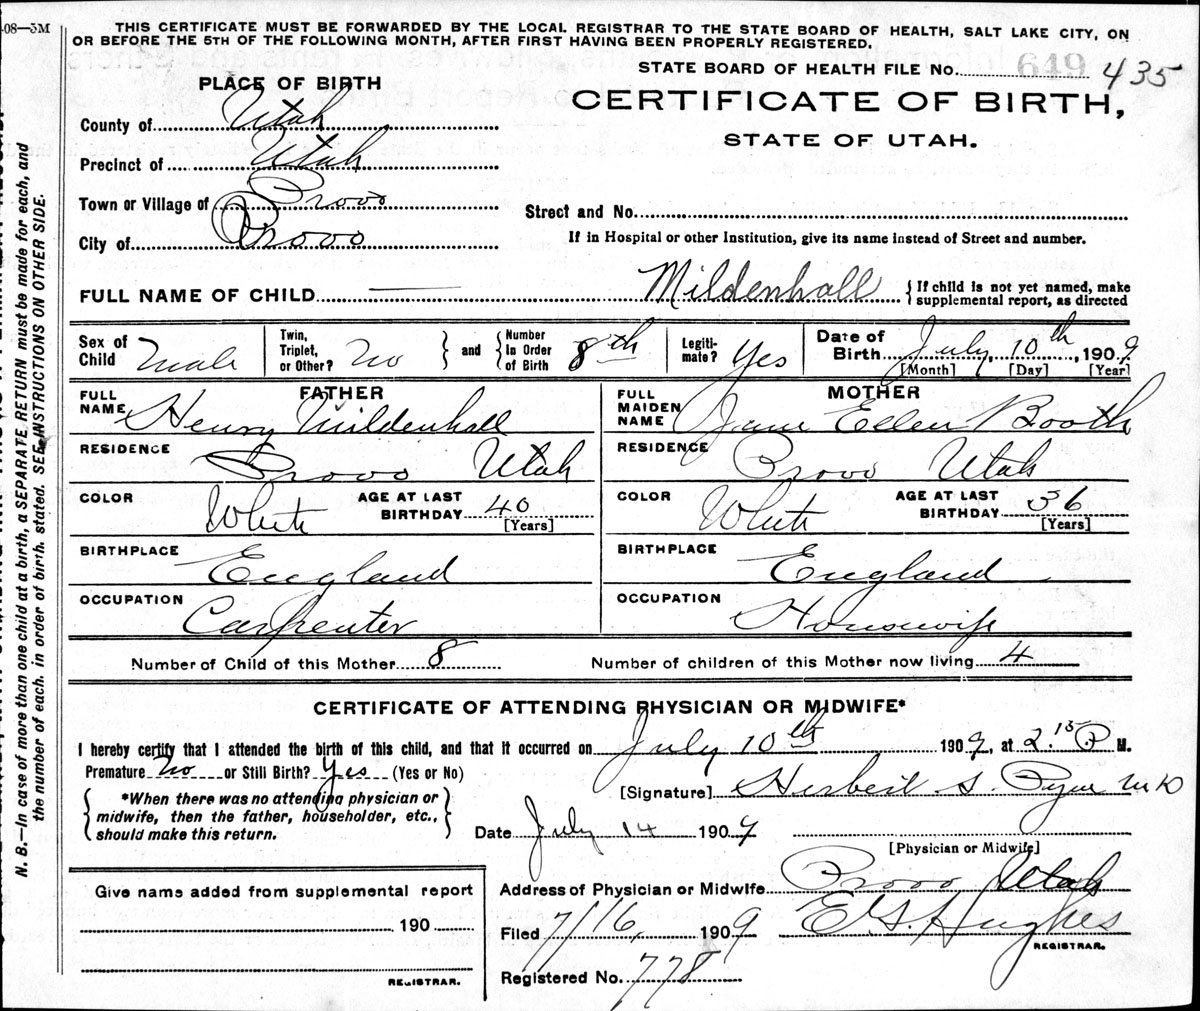 -08—5M
THIS CERTIFICATE MUST BE FORWARDED BY THE LOCAL REGISTRAR TO THE STATE BOARD OF HEALTH, SALT LAKE CITY, ON
OR BEFORE THE 5TH OF THE FOLLOWING MONTH, AFTER FIRST HAVING BEEN PROPERLY REGISTERED.
STATE BOARD OF HEALTH FILE No. 649 435
PLACE OF BIRTH
CERTIFICATE OF BIRTH,
STATE OF UTAH.
County of Utah
Precinct of Utah
Town or Village of Provo
City of Provo
Street and No.
If in Hospital or other Institution, give its name instead of Street and number.
FULL NAME OF CHILD Mildenhall {If child is not yet named, make supplemental report, as directed
Sex of Child Male
Twin, Triplet, or Other? No } and { Number In Order of Birth 8th
Legiti- mate? Yes
Date of Birth July, 10th, 1909
[Month] [Day] [Year]
FATHER
FULL NAME Henry Mildenhall
RESIDENCE Provo Utah
COLOR White AGE AT LAST BIRTHDAY 40 [Years]
BIRTHPLACE England
OCCUPATION Carpenter
MOTHER
FULL MAIDEN NAME Jane Ellen Booth
RESIDENCE Provo Utah
COLOR White AGE AT LAST BIRTHDAY 36 [Years]
BIRTHPLACE England
OCCUPATION Housewife
Number of Child of this Mother 8 Number of children of this Mother now living 4
CERTIFICATE OF ATTENDING PHYSICIAN OR MIDWIFE*
I hereby certify that I attended the birth of this child, and that it occurred on July 10th 1909, at 2.15 P M.
Premature No or Still Birth? Yes (Yes or No)
{*When there was no attending physician or
midwife, then the father, householder, etc.,
should make this return.}
[Signature] Herbert S. Pyne MD
Date July 14 1909
[Physician or Midwife]
Address of Physician or Midwife Provo Utah
Filed 7/16, 1909 E G Hughes
REGISTRAR.
Registered No. 778
Give name added from supplemental report
190
REGISTRAR.
N. B.—In case of more than one child at a birth, a SEPARATE RETURN must be made for each, and
the number of each, in order of birth, stated. SEE INSTRUCTIONS ON OTHER SIDE.